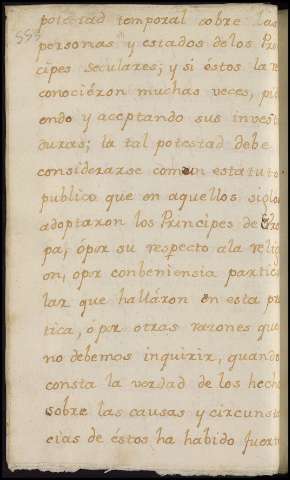 555
potestad temporal sobre las
personas y estados delos Prin
cipes seculares; y si éstos la re
conociéron muchas veces, pidi
endo y aceptando sus investi
duras; la tal potestad debe
considerarse como un estatuto
publico que en aquellos siglos
adoptaron los Principes de Euro
pa, ópor su respecto ala religi
on, opor conbeniensia particu
lar que halláron en esta prac
tica, ópor otras razones que
no debemos inquirir, quando
consta la verdad de los hechos
sobre las causas y circunstan
cias de éstos ha habido fuerte